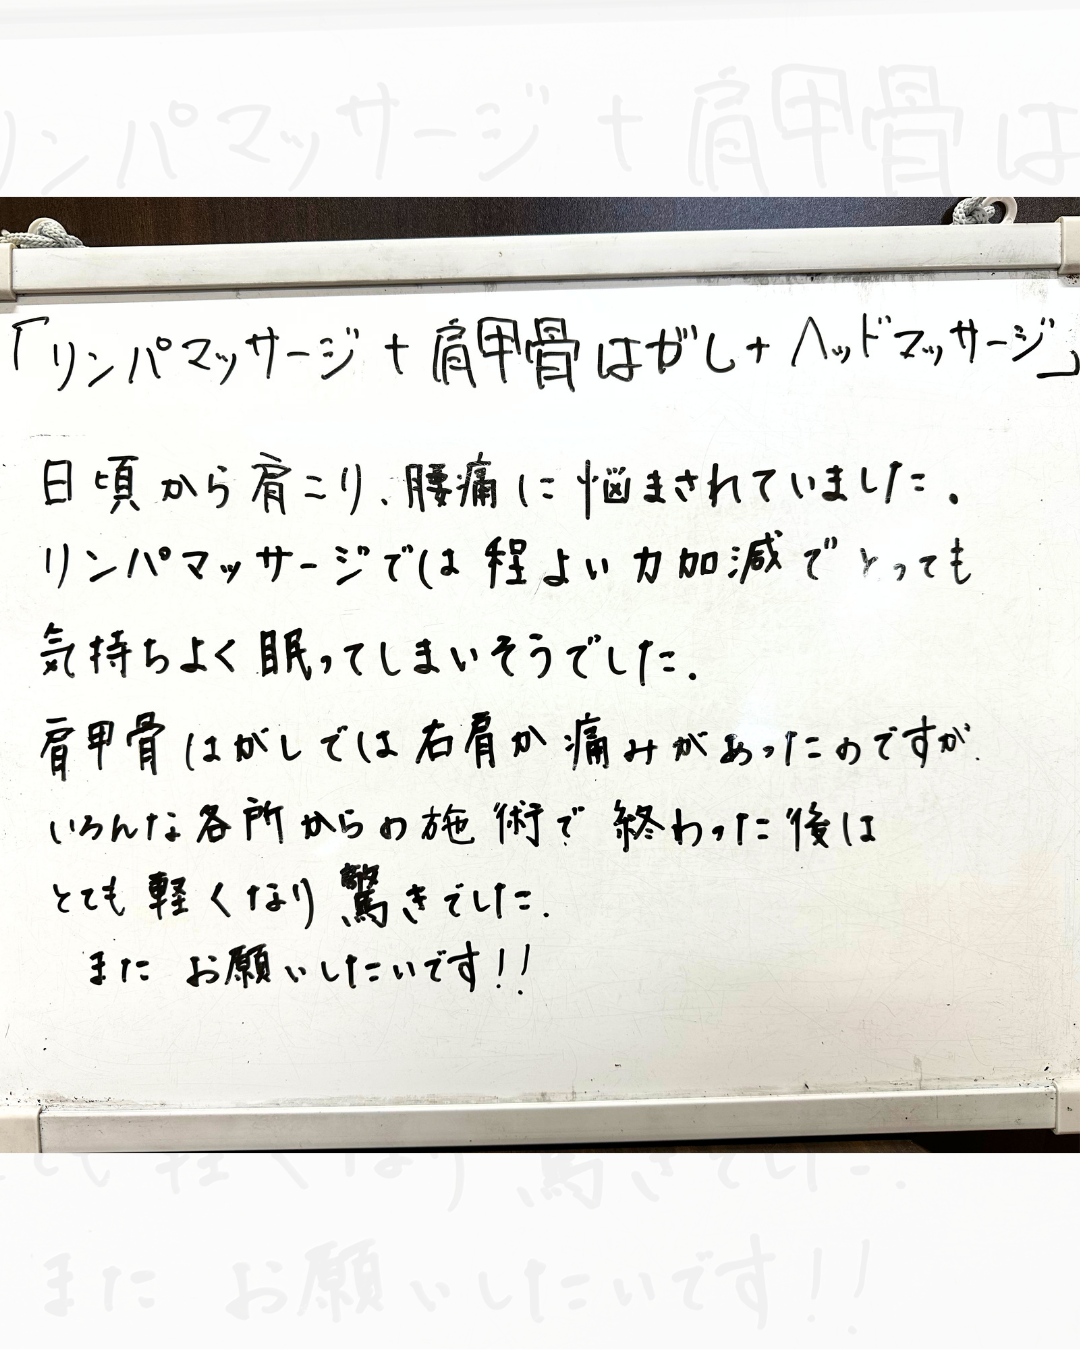 リンパマッサージ + 肩甲骨は
「リンパマッサージ + 肩甲骨はがし + ヘッドマッサージ」
日頃から肩こり、腰痛に悩まされていました。
リンパマッサージでは程よい力加減でとっても
気持ちよく眠ってしまいそうでした。
肩甲骨はがしでは右肩か痛みがあったのですが.
いろんな各所からの施術で終わった後は
とても軽くなり驚きでした.
また お願いしたいです!!
とても軽くなり驚きでした.
また お願いしたいです!!